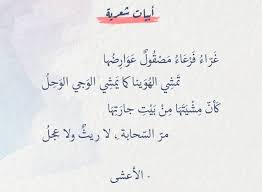 أبيات شعرية
غَرَاءُ فَرْعَاءُ مَصْقُولٌ عَوَارِضُها
تَمشِي الهُوَينا كَما يَمشِي الوَجي الوَحِلُ
كَأَنَّ مِشْيَتَهَا مِنْ بَيْتِ جارَتِهَا
مرّ السّحابة ، لا ريثٌ ولا عجلُ
- الأعشى